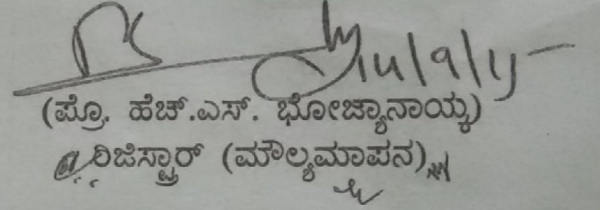 (ಪ್ರೊ. ಹೆಚ್.ಎಸ್. ಭೋಜ್ಯಾನಾಯ್ಕ)
ರಿಜಿಸ್ಟ್ರಾರ್ (ಮೌಲ್ಯಮಾಪನ)